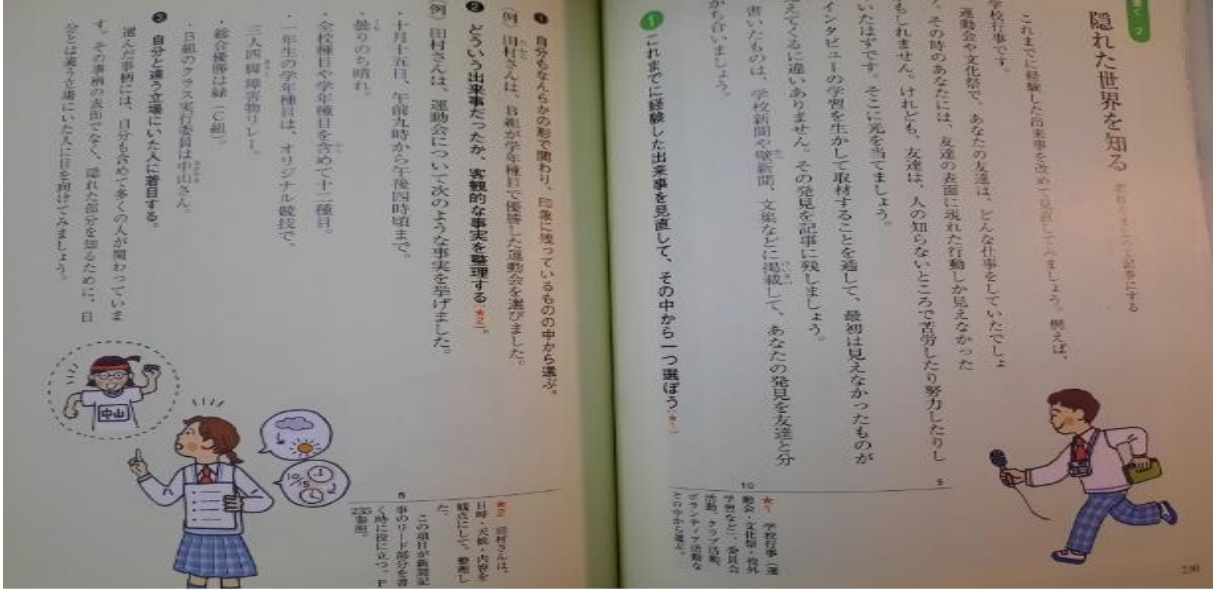 書く 2
隠れた世界を知る
これまでに経験した出来事を改めて見直してみましょう。例えば、
学校行事です。
運動会や文化祭で、あなたの友達は、どんな仕事をしていたでしょ
。その時のあなたには、友達の表面に現れた行動しか見えなかった
もしれません。けれども、友達は、人の知らないところで苦労したり努力したりし
いたはずです。そこに光を当てましょう。
インタビューの学習を生かして取材することを通して、最初は見えなかったものが
えてくるに違いありません。その発見を記事に残しましょう。
書いたものは、学校新聞や壁新聞、文集などに掲載して、あなたの発見を友達と分
かち合いましょう。
5
10
1 これまでに経験した出来事を見直して、その中から一つ選ぼう
★1 学校行事(運
動会・文化祭・校外
学習など)、委員会
活動、クラブ活動、
ボランティア活動な
どの中から選ぶ。
230
1 自分もなんらかの形で関わり、印象に残っているものの中から選ぶ。
(例) 田村さんは、B組が学年種目で優勝した運動会を選びました。
2 どういう出来事だったか、客観的な事実を整理する(★2)。
(例) 田村さんは、運動会について次のような事実を挙げました。
・十月十五日、午前九時から午後四時頃まで。
・曇りのち晴れ。
・全校種目や学年種目を含めて十二種目。
・一年生の学年種目は、オリジナル競技で、
三人四脚障害物リレー。
・総合優勝は緑(C組)。
・B組のクラス実行委員は中山さん。
3 自分と違う立場にいた人に着目する。
選んだ事柄には、自分も含めて多くの人が関わっていま
す。その事柄の表面でなく、隠れた部分を知るために、自
分とは違う立場にいた人に目を向けてみましょう。
5
★2 田村さんは、
日時・天候・内容を
観点にして、整理し
た。
この項目が新聞記
事のリード部分を書
く時に役に立つ。P
235参照。
中山
10/15